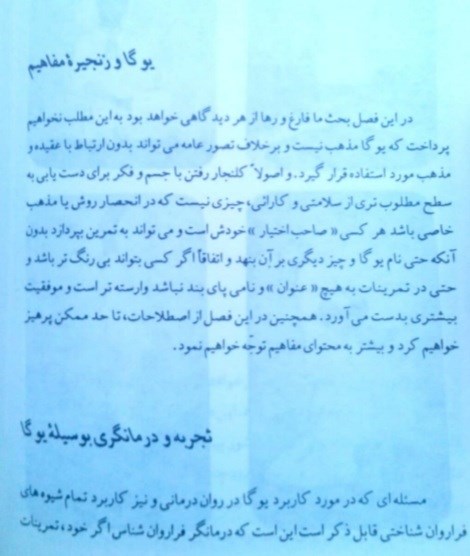 یوگا و زنجیرهٔ مفاهیم
در این فصل بحث ما فارغ و رها از هر دیدگاهی خواهد بود به این مطلب نخواهیم
پرداخت که یوگا مذهب نیست و برخلاف تصور عامه می تواند بدون ارتباط با عقیده و
مذهب مورد استفاده قرار گیرد. و اصولاً کلنجار رفتن با جسم و فکر برای دست یابی به
سطح مطلوب تری از سلامتی و کارائی، چیزی نیست که در انحصار روش یا مذهب
خاصی باشد هر کسی «صاحب اختیار» خودش است و می تواند به تمرین بپردازد بدون
آنکه حتی نام یوگا و چیز دیگری بر آن بنهد و اتفاقاً اگر کسی بتواند بی رنگ تر باشد و
حتی در تمرینات به هیچ «عنوان» و نامی پای بند نباشد وارسته تر است و موفقیت
بیشتری بدست می آورد. همچنین در این فصل از اصطلاحات، تا حد ممکن پرهیز
خواهیم کرد و بیشتر به محتوای مفاهیم توجّه خواهیم نمود.
تجربه و درمانگری بوسیلهٔ یوگا
مسئله ای که در مورد کاربرد یوگا در روان درمانی و نیز کاربرد تمام شیوه های
فراروان شناختی قابل ذکر است این است که درمانگر فراروان شناس اگر خود، تمرینات